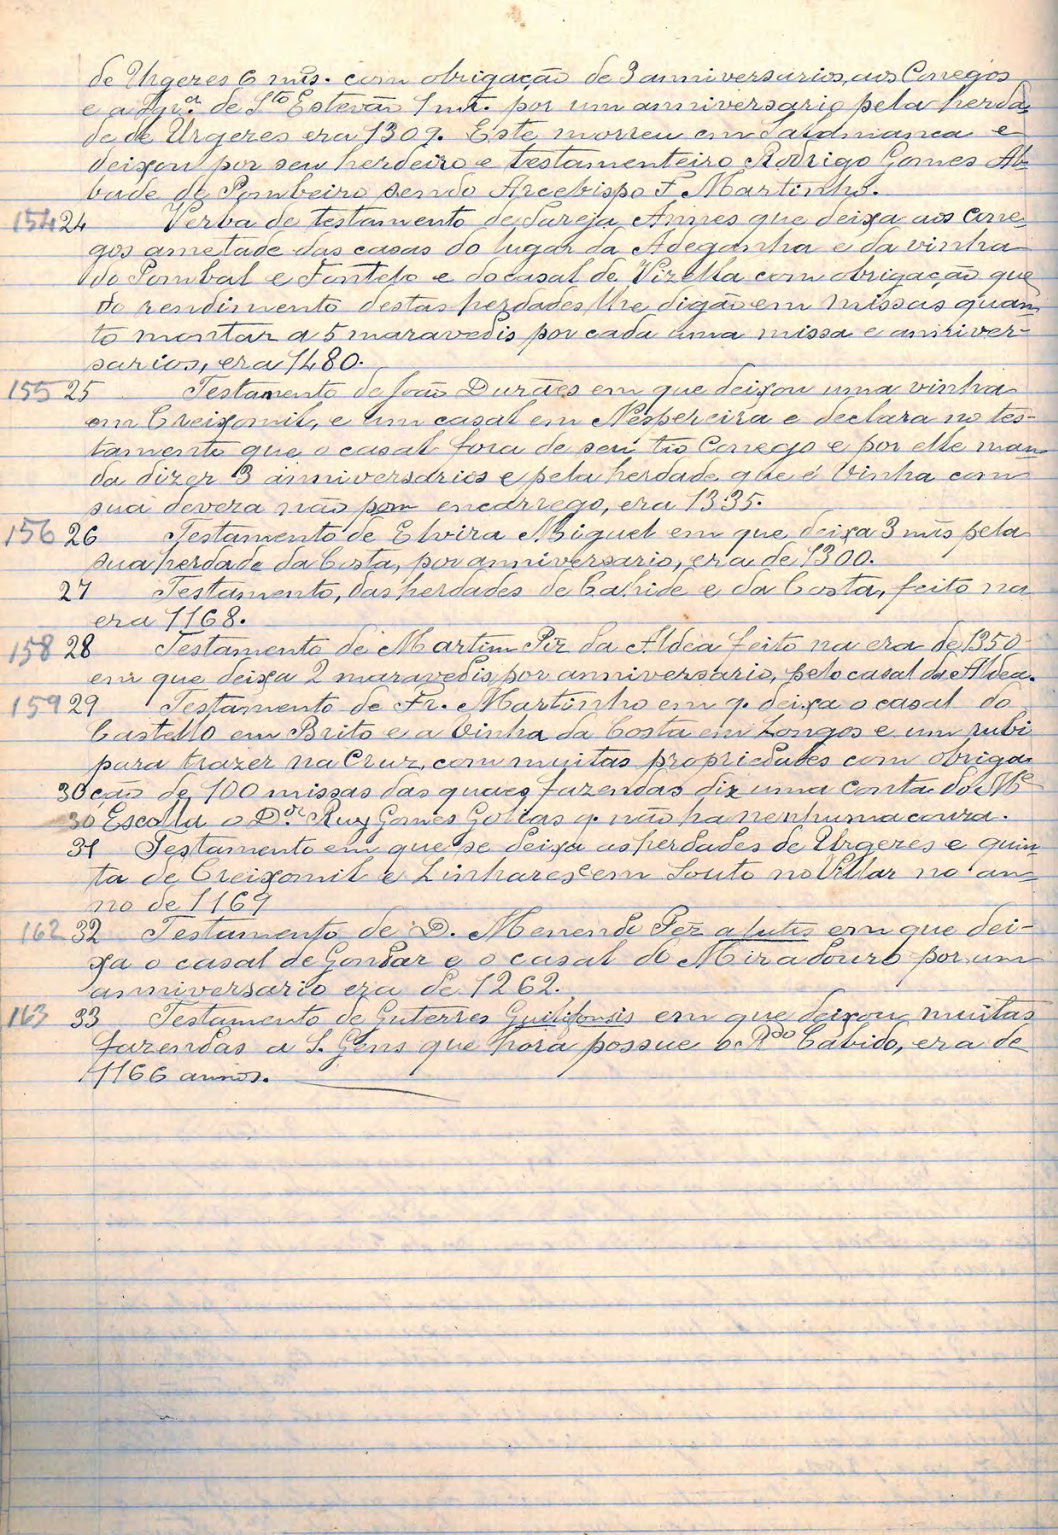 de Urgeres 6 mrs. com obrigação de 3 anniversarios, aos Conegos
e a Igr.ª de Sto Estevão 1 mr. por um anniversario pela herda
de de Urgeres era 1309. Este morreu em Salamanca e
deixou por seu herdeiro e testamenteiro Rodrigo Gomes Ab-
bade de Pombeiro sendo Arcebispo F. Martinho.
154 24 Verba de testamento de Sareja Annes que deixa aos Cone-
gos ametade das casas do lugar da Adeganha e da vinha
do Pombal e Fontelo e do casal de Vizella com obrigação que
do rendimento destas herdades lhe digão em missas quan-
to montar a 5 maravedis por cada uma missa e anniver-
sarios, era 1480.
155 25 Testamento de João Durães em que deixou uma vinha
em Creixomil, e um casal em Nespereira e declara no tes-
tamento que o casal fora de seu tio Conego e por elle man-
da dizer 3 anniversarios e pela herdade que é Vinha com
sua deveza não poz encarrego, era 1335.
156 26 Testamento de Elvira Miguel em que deixa 3 mrs pela
sua herdade da Costa, por anniversario, era de 1300.
27 Testamento, das herdades de Cahide e da Costa, feito na
era 1168.
158 28 Testamento de Martim Piz da Aldea feito na era de 1350
em que deixa 2 maravedis por anniversario, pelo casal da Aldea.
159 29 Testamento de Fr. Martinho em q. deixa o casal do
Castello em Brito e a Vinha da Costa em Longos e um rubi
para trazer na Cruz, com muitas propriedades com obriga-
30 ção de 100 missas das quaes fazendas diz uma conta do Me
30 Escolla o D.or Ruy Gomes Golias q. não ha nenhuma couza.
31 Testamento em que se deixa as herdades de Urgeres e quin-
ta de Creixomil e Linhares e em Souto no Villar no an-
no de 1169
162 32 Testamento de D. Menendo Pez alutis em que dei-
xa o casal de Gondar e o casal do Miradouro por um
anniversario era de 1262.
163 33 Testamento de Guterres Guilifonsis em que deixou muitas
fazendas a S. Gens que hora possue o Rdo Cabido, era de
1166 annos.